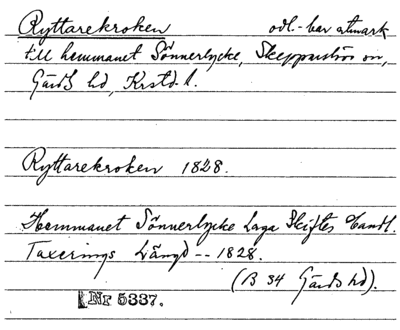 Ryttarekroken odl.-bar utmark
till hemmanet Sönnerlycke, Skepparslövs sn,
Gärds hd, Krstd. l.
Ryttarekroken 1828.
Hemmanet Sönnerlycke Laga Skiftes Handl.
Taxerings Längd -- 1828.
(B 34 Gärds hd).
Nr 5337.